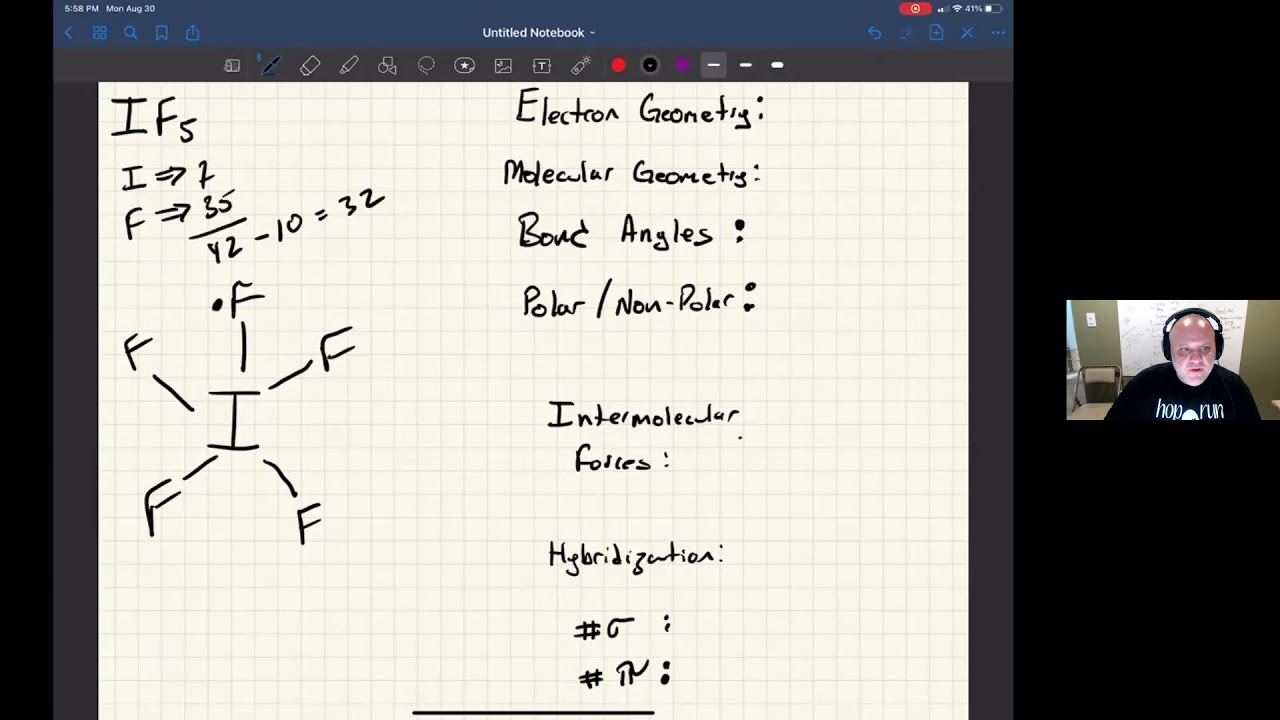 5:58 PM Mon Aug 30
41%
Untitled Notebook
T
IF₅
I ⇒ 7
F ⇒ 35
42 - 10 = 32
•F
F
F
I
F
F
Electron Geometry:
Molecular Geometry:
Bond Angles :
Polar/Non-Polar:
Intermolecular
Forces :
Hybridization:
#σ :
#π :
hop run